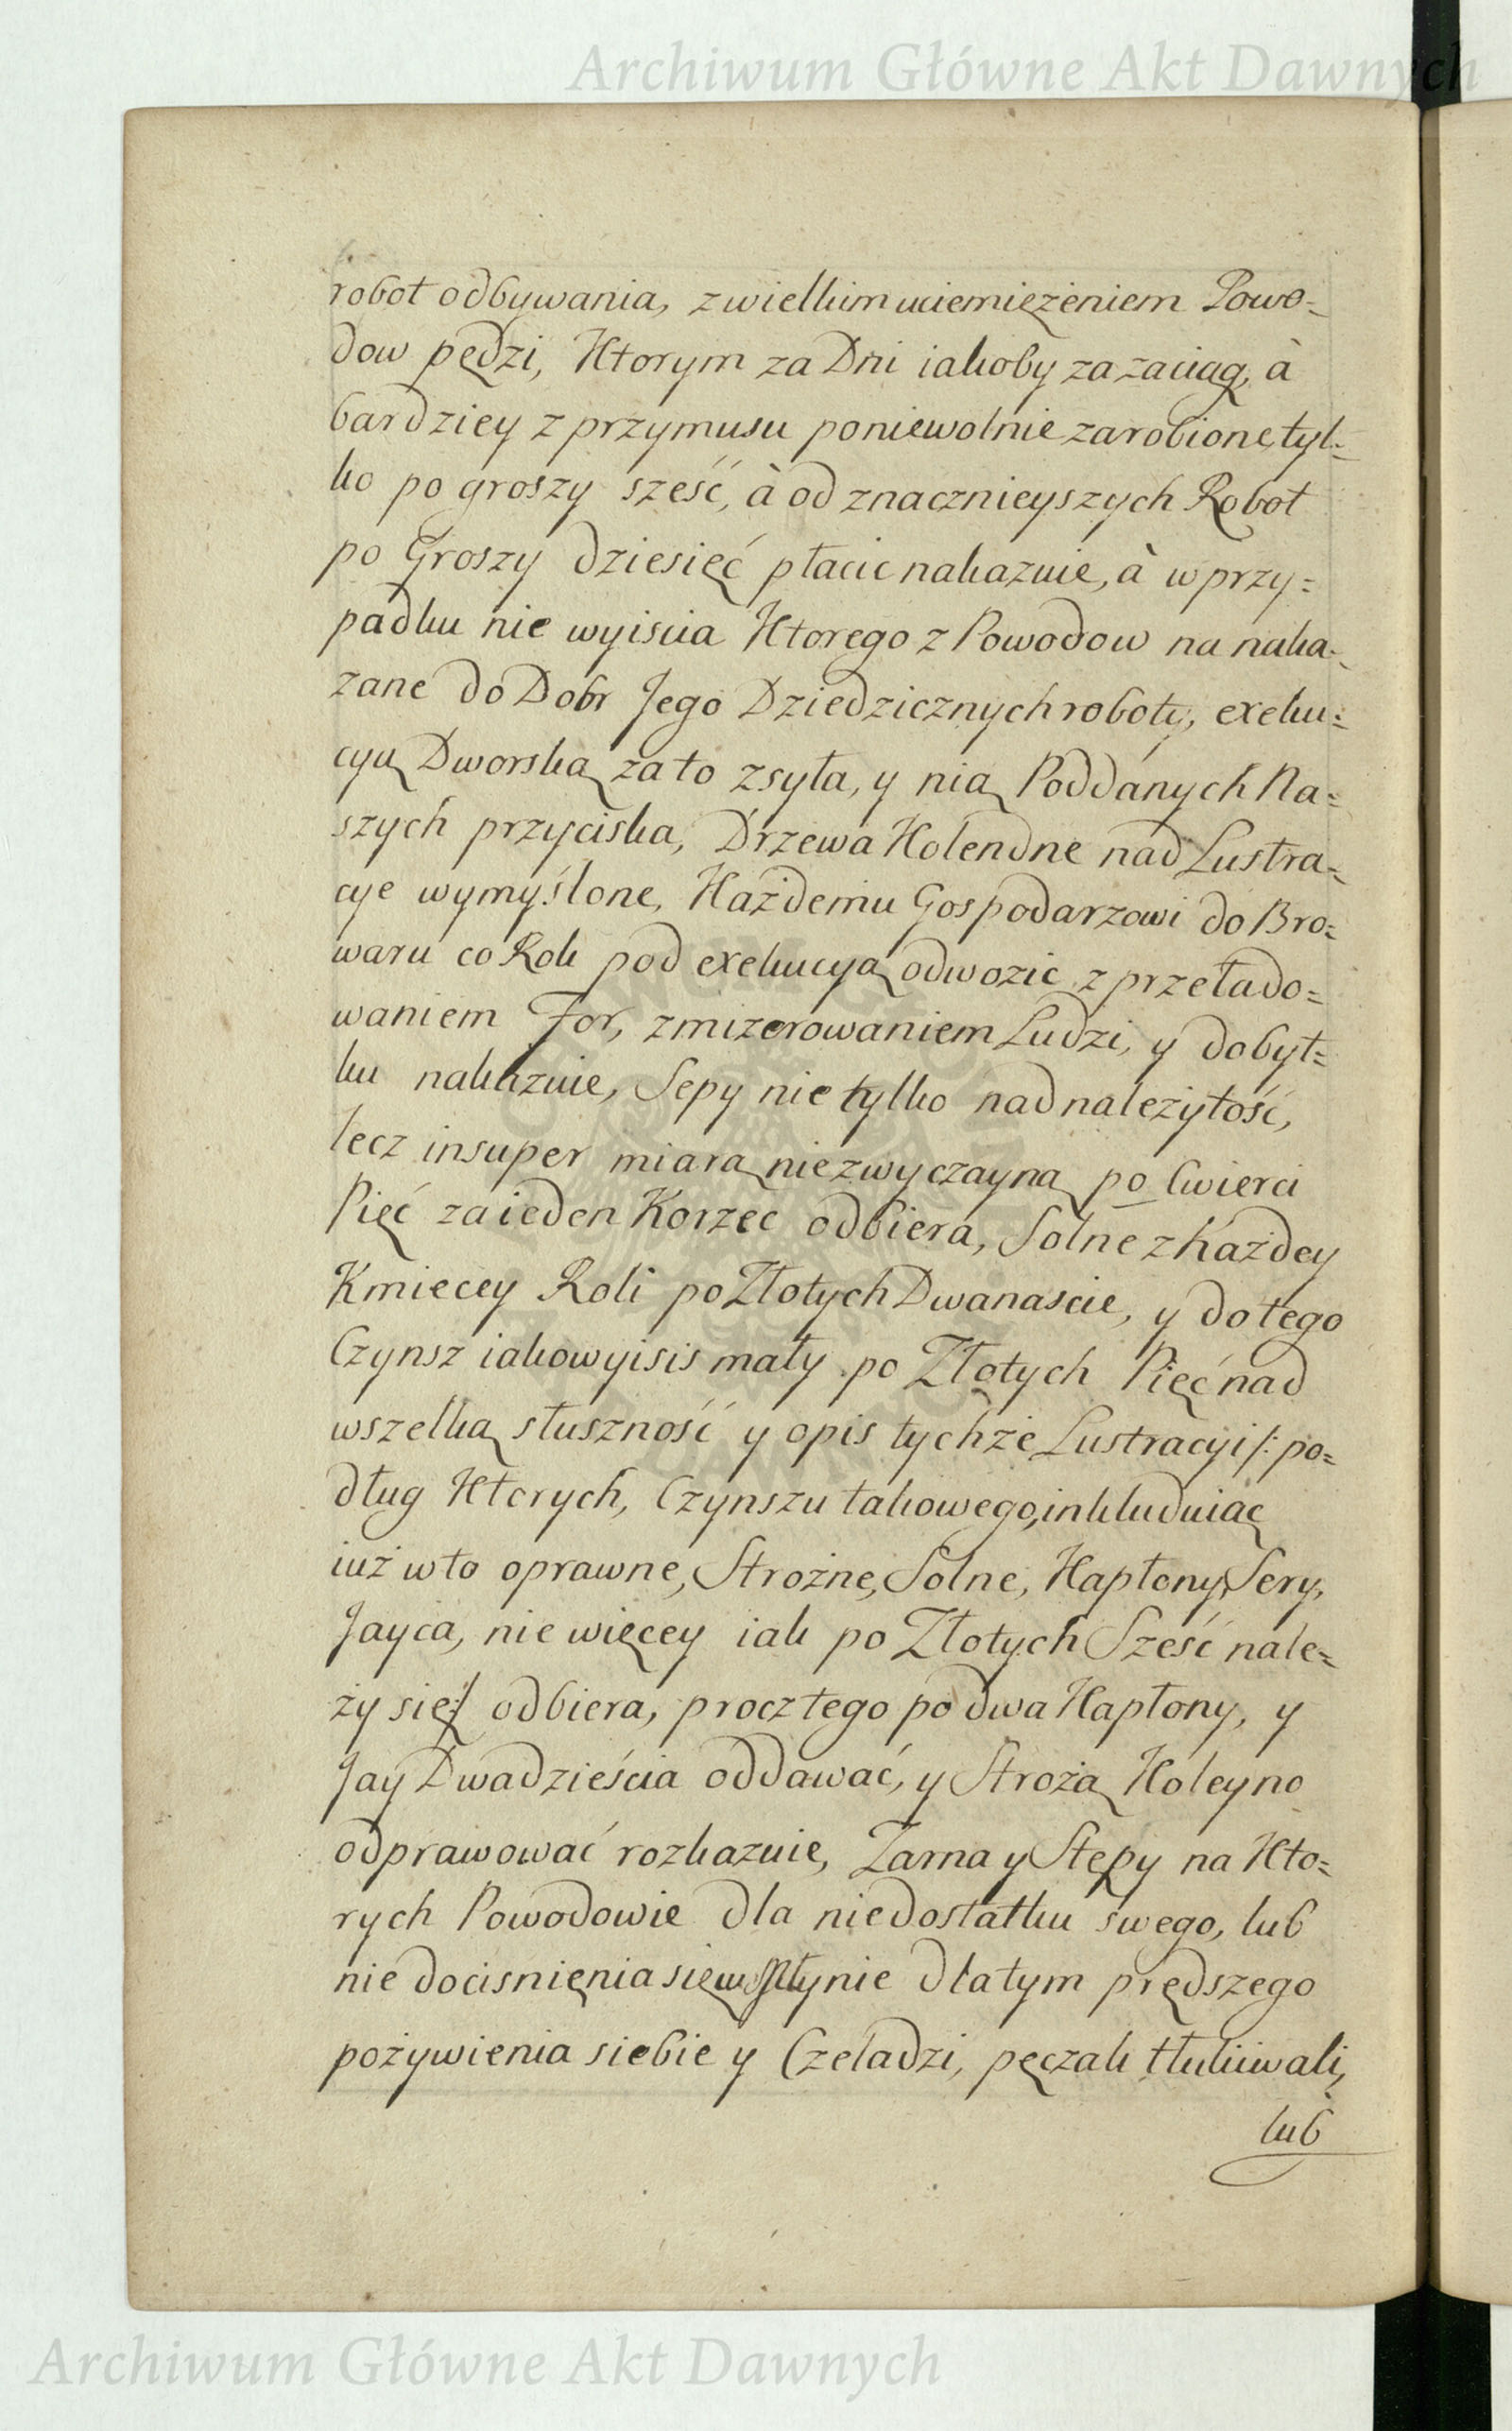 Archiwum Główne Akt Dawnych
robot odbywania, z wielkim uciemiężeniem Powo=
dow pędzi, Ktorym za Dni iakoby za zaciąg, à
bardziey z przymusu poniewolnie zarobione, tyl=
ko po groszy sześć, à od znacznieyszych Robot
po Groszy dziesięć płacic nakazuie, à w przy=
padku nie wyiscia Ktorego z Powodow na naka=
zane do Dobr Jego Dziedzicznych roboty, exeku=
cyą Dworską za to zsyła, y nią Poddanych Na=
szych przyciska, Drzewa Kolendne nad Lustra=
cye wymyślone, Każdemu Gospodarzowi do Bro=
waru co Rok pod exekucyą odwozic z przełado=
waniem For, zmizerowaniem Ludzi, y dobyt=
ku nakazuie, Sepy nie tylko nad nalezytość,
lecz insuper miarą niezwyczayną po Cwierci
Pięć za ieden Korzec odbiera, Solne z Każdey
Kmiecey Roli po Złotych Dwanascie, y do tego
Czynsz iakowyisis mały po Złotych Pięć nad
wszelką słuszność y opis tychże Lustracyi /: po=
dług Ktorych, Czynszu takowego, inkluduiąc
iuż w to oprawne, Strożne, Solne, Kapłony, Sery,
Jayca, nie więcey iak po Złotych Sześć nale=
ży się :/ odbiera, procz tego po dwa Kapłony, y
Jay Dwadzieścia oddawać, y Strożą Koleyno
odprawować rozkazuie, Zarna y Stępy na Kto=
rych Powodowie dla niedostatku swego, lub
nie docisnięnia się w Młynie dla tym prędszego
pożywienia siebie y Czeladzi, pęczak tłukiwali,
lub
Archiwum Główne Akt Dawnych